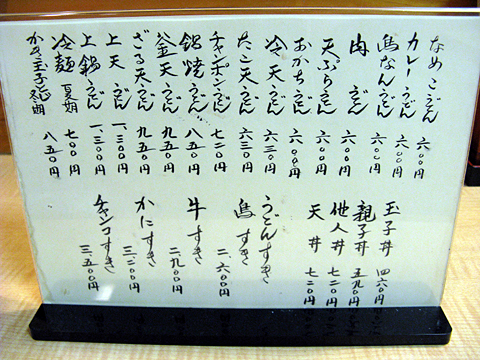 なめこうどん 六００円
カレーうどん 六００円
鳥なんうどん 六００円
肉うどん 六００円
天ぷらうどん 六００円
おかちんうどん 六００円
冷天うどん 六三０円
たこ天うどん 六三０円
チャンポンうどん 七二０円
鍋焼うどん 八五０円
釜天うどん 九五０円
ざる天うどん 九五０円
上天うどん 一、三００円
上鍋うどん 一、三００円
冷麺 夏期 七００円
かき玉子 冬期 八五０円
玉子丼 四六０円
親子丼 五九０円
他人丼 七二０円
天丼 七二０円
うどんすき
鳥すき 二、六００円
牛すき 二、九００円
かにすき 三、二００円
チャンコすき 三、五００円